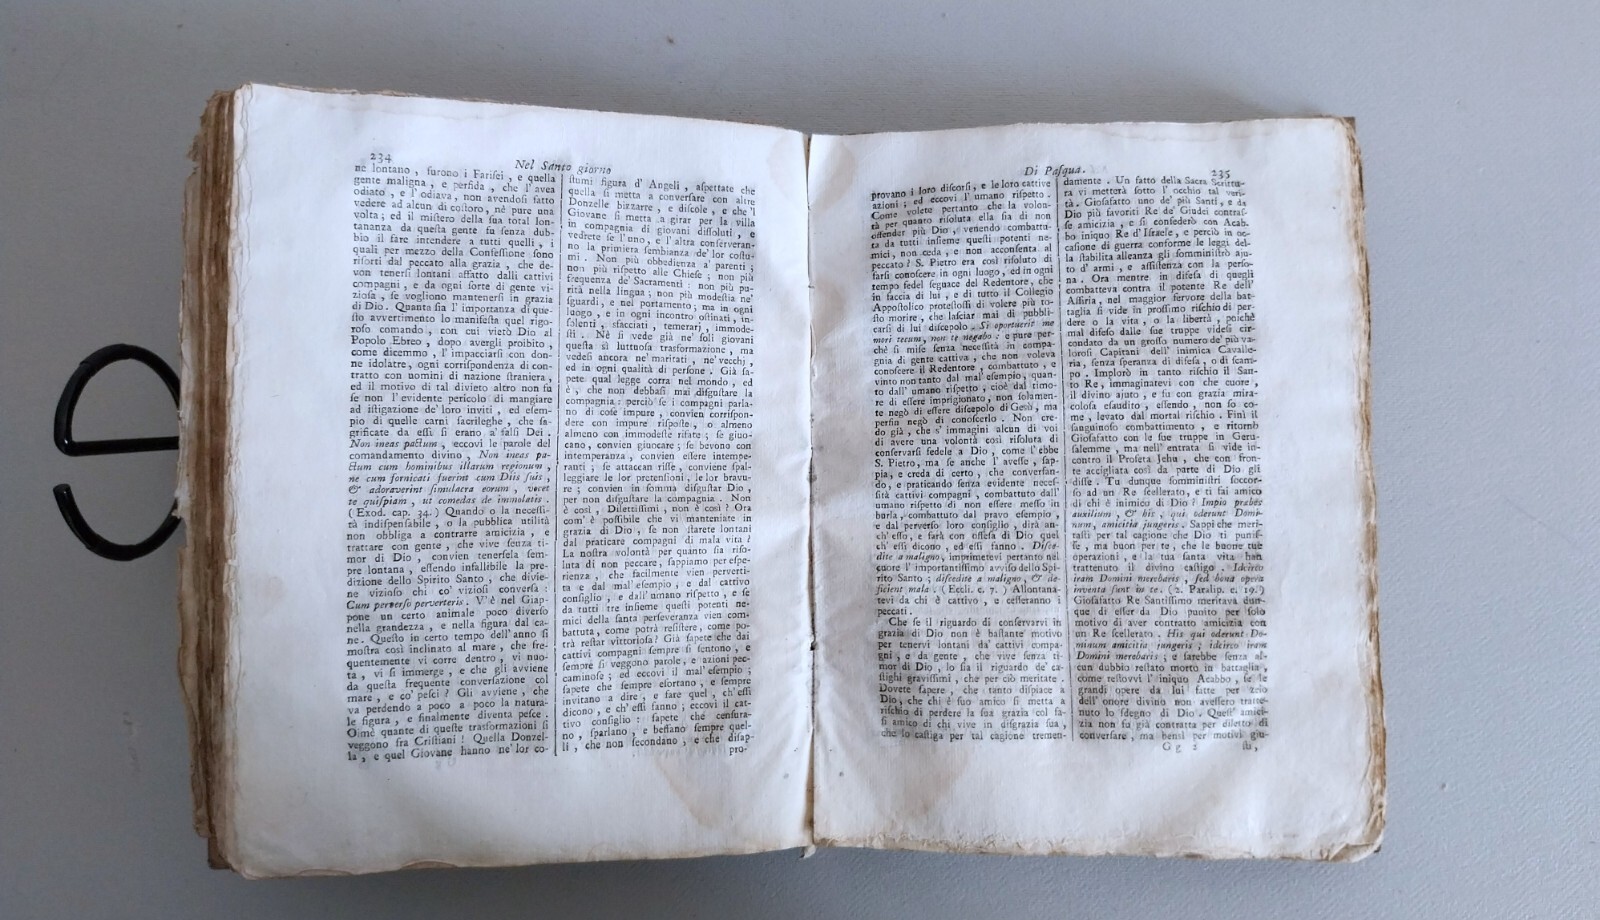 234
Nel Santo giorno
ne lontano , furono i Farisei , e quella
gente maligna , e perfida , che l' avea
odiato , e l' odiava, non avendosi fatto
vedere ad alcun di costoro, nè pure una
volta; ed il mistero della sua total lon-
tananza da questa gente fu senza dub-
bio il fare intendere a tutti quelli , i
quali per mezzo della Confessione sono
risorti dal peccato alla grazia , che de-
von tenersi lontani affatto dalli cattivi
compagni , e da ogni sorte di gente vi-
ziosa , se vogliono mantenersi in grazia
di Dio . Quanta sia l' importanza di que-
sto avvertimento lo manifesta quel rigo-
roso comando , con cui vietò Dio al
Popolo Ebreo , dopo avergli proibito ,
come dicemmo , l' impacciarsi con don-
ne idolatre, ogni corrispondenza di con-
tratto con uomini di nazione straniera,
ed il motivo di tal divieto altro non fu
se non l' evidente pericolo di mangiare
ad istigazione de' loro inviti , ed esem-
pio di quelle carni sacrileghe , che sa-
grificate da essi si erano a' falsi Dei .
Non ineas pactum , eccovi le parole del
comandamento divino , Non ineas pa-
ctum cum hominibus illarum regionum ,
ne cum fornicati fuerint cum Diis suis ,
& adoraverint simulacra eorum , vocet
te quispiam , ut comedas de immolatis .
( Exod. cap. 34. ) Quando o la necessi-
tà indispensabile , o la pubblica utilità
non obbliga a contrarre amicizia , e
trattare con gente , che vive senza ti-
mor di Dio , convien tenersela sem-
pre lontana , essendo infallibile la pre-
dizione dello Spirito Santo , che divie-
ne vizioso chi co' viziosi conversa :
Cum perverso perverteris . V' è nel Giap-
pone un certo animale poco diverso
nella grandezza , e nella figura dal ca-
ne . Questo in certo tempo dell' anno si
mostra così inclinato al mare , che fre-
quentemente vi corre dentro , vi nuo-
ta , vi si immerge , e che gli avviene
da questa frequente conversazione col
mare , e co' pesci ? Gli avviene , che
va perdendo a poco a poco la natura-
le figura , e finalmente diventa pesce .
Oimè quante di queste trasformazioni si
veggono fra Cristiani ! Quella Donzel-
la , e quel Giovane hanno ne' lor co-
stumi figura d' Angeli , aspettate che
quella si metta a conversare con altre
Donzelle bizzarre , e discole , e che 'l
Giovane si metta a girar per la villa
in compagnia di giovani dissoluti , e
vedrete se l' uno , e l' altra conserveran-
no la primiera sembianza de' lor costu-
mi . Non più obbedienza a' parenti ;
non più rispetto alle Chiese ; non più
frequenza de' Sacramenti : non più pu-
rità nella lingua ; non più modestia ne'
sguardi , e nel portamento ; ma in ogni
luogo , e in ogni incontro ostinati , in-
solenti , sfacciati , temerarj , immode-
sti . Nè si vede già ne' soli giovani
questa sì luttuosa trasformazione , ma
vedesi ancora ne' maritati , ne' vecchi ,
ed in ogni qualità di persone . Già sa-
pete qual legge corra nel mondo , ed
è , che non debbasi mai disgustare la
compagnia : perciò se i compagni parla-
no di cose impure , convien corrispon-
dere con impure risposte , o almeno
almeno con immodeste risate ; se giuo-
cano, convien giuocare ; se bevono con
intemperanza , convien essere intempe-
ranti ; se attaccan risse , conviene spal-
leggiare le lor pretensioni , le lor bravu-
re ; convien in somma disgustar Dio ,
per non disgustare la compagnia . Non
è così , Dilettissimi , non è così ? Ora
com' è possibile che vi manteniate in
grazia di Dio , se non starete lontani
dal praticare compagni di mala vita ?
La nostra volontà per quanto sia riso-
luta di non peccare , sappiamo per espe-
rienza , che facilmente vien perverti-
ta e dal mal' esempio , e dal cattivo
consiglio , e dall' umano rispetto , e se
da tutti tre insieme questi potenti ne-
mici della santa perseveranza vien com-
battuta, come potrà resistere, come po-
trà restar vittoriosa ? Già sapete che dai
cattivi compagni sempre si sentono , e
sempre si veggono parole, e azioni pec-
caminose ; ed eccovi il mal' esempio ;
sapete che sempre esortano , e sempre
invitano a dire , e fare quel , ch' essi
dicono , e ch' essi fanno ; eccovi il cat-
tivo consiglio : sapete che censura-
no , sparlano , e beffano sempre quel-
li , che non secondano , e che disap-
pro-
Di Pasqua.
235
provano i loro discorsi , e le loro cattive
azioni ; ed eccovi l' umano rispetto .
Come volete pertanto che la volon-
tà per quanto risoluta ella sia di non
offender più Dio , venendo combattu-
ta da tutti insieme questi potenti ne-
mici, non ceda , e non acconsenta al
peccato ? S. Pietro era così risoluto di
farsi conoscere in ogni luogo , ed in ogni
tempo fedel seguace del Redentore, che
in faccia di lui , e di tutto il Collegio
Appostolico protestossi di volere più to-
sto morire , che lasciar mai di pubbli-
carsi di lui discepolo . Si oportuerit me
mori tecum, non te negabo : e pure per-
chè si mise senza necessità in compa-
gnia di gente cattiva , che non voleva
conoscere il Redentore , combattuto , e
vinto non tanto dal mal' esempio, quan-
to dall' umano rispetto , cioè dal timo-
re di essere imprigionato, non solumen-
te negò di essere discepolo di Gesù, ma
perfin negò di conoscerlo . Non cre-
do già , che s' immagini alcun di voi
di avere una volontà così risoluta di
conservarsi fedele a Dio , come l' ebbe
S. Pietro , ma se anche l' avesse , sap-
pia , e creda di certo , che conversan-
do , e praticando senza evidente neces-
sità cattivi compagni , combattuto dall'
umano rispetto di non essere messo in
burla, combattuto dal pravo esempio ,
e dal perverso loro consiglio , dirà an-
ch' esso, e farà con offesa di Dio quel
ch' essi dicono , ed essi fanno . Disce-
dite a maligno, imprimetevi pertanto nel
cuore l' importantissimo avviso dello Spi-
rito Santo ; discedite a maligno , & de-
ficient mala . ( Eccli. c. 7. ) Allontana-
tevi da chi è cattivo , e cesseranno i
peccati .
Che se il riguardo di conservarvi in
grazia di Dio non è bastante motivo
per tenervi lontani da' cattivi compa-
gni , e da gente , che vive senza ti-
mor di Dio , lo sia il riguardo de' ca-
stighi gravissimi , che per ciò meritate .
Dovete sapere , che tanto dispiace a
Dio, che chi è suo amico si metta a
rischio di perdere la sua grazia col fa-
si amico di chi vive in disgrazia sua ,
che lo castiga per tal cagione tremen-
damente . Un fatto della Sacra Scrittu-
ra vi metterà sotto l' occhio tal veri-
tà . Giosafatto uno de' più Santi , e da
Dio più favoriti Re de' Giudei contras-
se amicizia , e si confederò con Acab-
bo iniquo Re d' Israele , e perciò in oc-
casione di guerra conforme le leggi del-
la stabilita alleanza gli somministrò aju-
to d' armi , e assistenza con la perso-
na . Ora mentre in difesa di quegli
combatteva contra il potente Re dell'
Assiria, nel maggior fervore della bat-
taglia si vide in prossimo rischio di per-
dere o la vita , o la libertà , poichè
mal difeso dalle sue truppe videsi cir-
condato da un grosso numero de' più va-
lorosi Capitani dell' inimica Cavalle-
ria, senza speranza di difesa, o di scam-
po . Implorò in tanto rischio il San-
to Re , immaginatevi con che cuore ,
il divino ajuto , e fu con grazia mira-
colosa esaudito , essendo , non so co-
me , levato dal mortal rischio . Finì il
sanguinoso combattimento , e ritornò
Giosafatto con le sue truppe in Geru-
salemme , ma nell' entrata si vide in-
contro il Profeta Jehu , che con fron-
te accigliata così da parte di Dio gli
disse . Tu dunque somministri soccor-
so ad un Re scellerato , e ti fai amico
di chi è inimico di Dio ? Impio præbes
auxilium , & his , qui oderunt Domi-
num, amicitia jungeris . Sappi che meri-
tasti per tal cagione che Dio ti punis-
se , ma buon per te , che le buone tue
operazioni , e la tua santa vita han
trattenuto il divino castigo . Idcirco
iram Domini merebaris , sed bona opera
inventa sunt in te . ( 2. Paralip. c. 19. )
Giosafatto Re Santissimo meritava dun-
que di esser da Dio punito per solo
motivo di aver contratto amicizia con
un Re scellerato . His qui oderunt Do-
minum amicitia jungeris ; idcirco iram
Domini merebaris ; e sarebbe senza al-
cun dubbio restato morto in battaglia ,
come restovvi l' iniquo Acabbo , se le
grandi opere da lui fatte per zelo
dell' onore divino non avessero tratte-
nuto lo sdegno di Dio . Quest' amici-
zia non fu già contratta per diletto di
conversare , ma bensì per motivi giu-
G g 2
sti ,